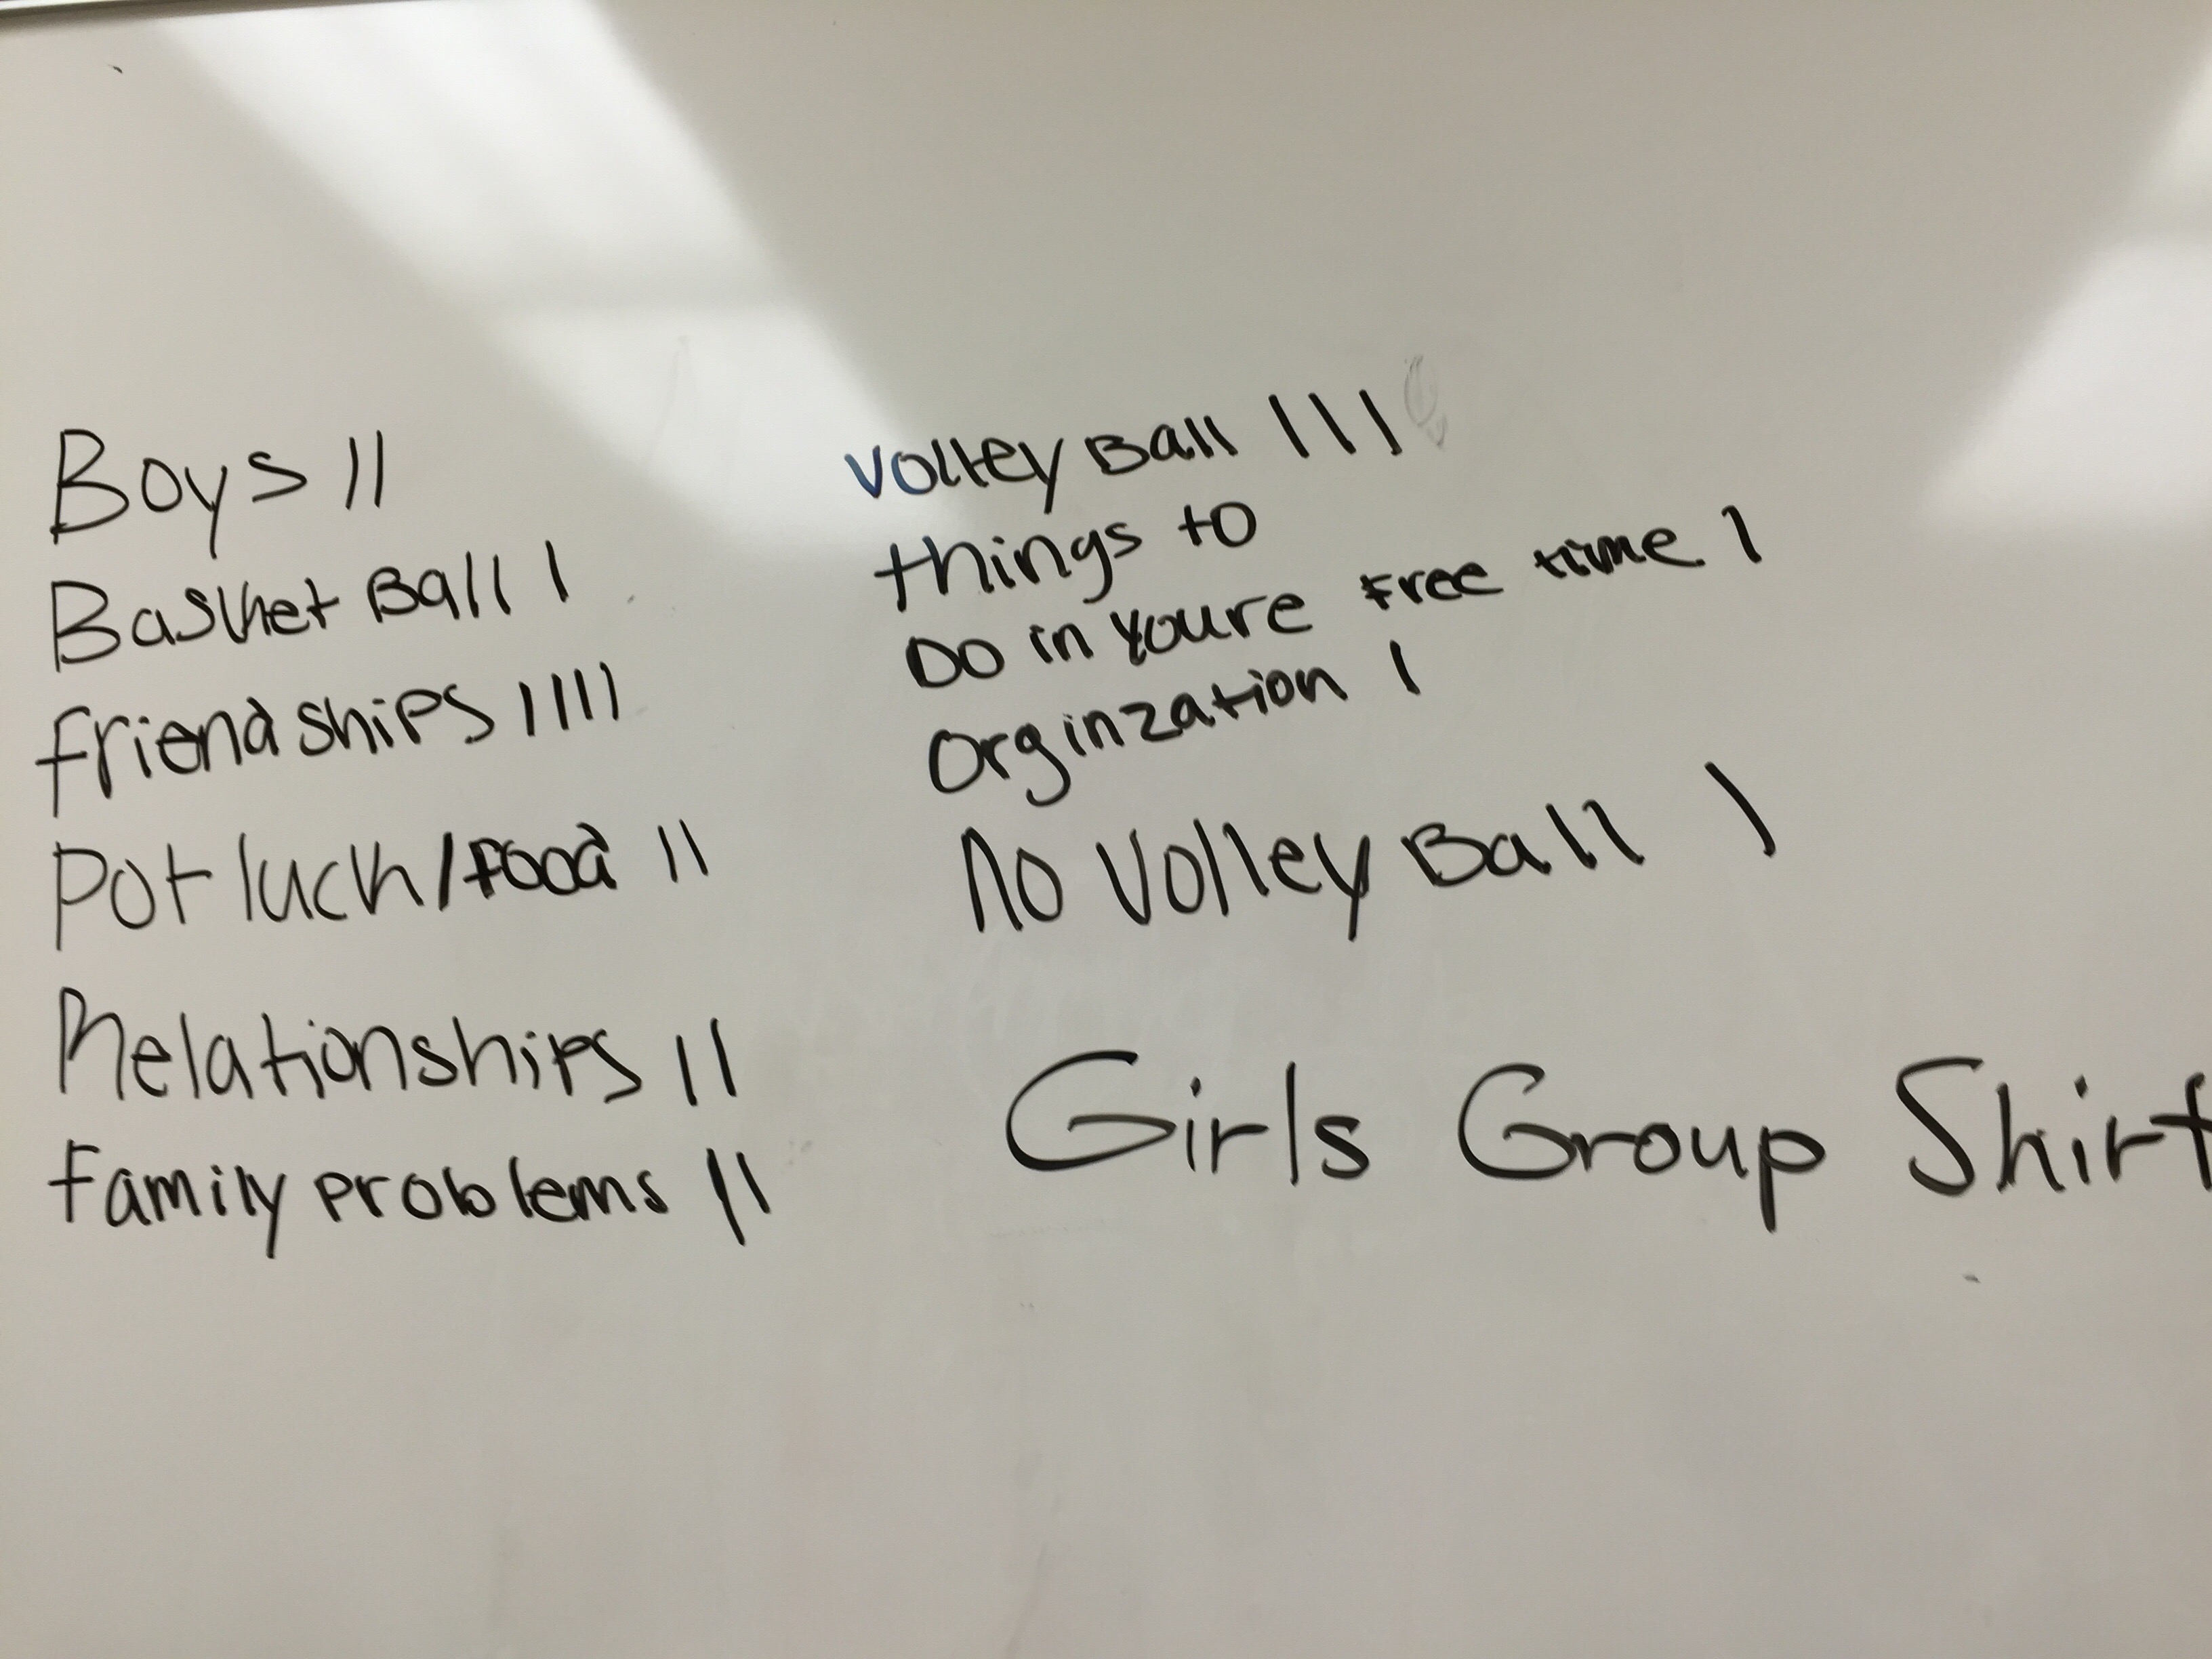 Boys ||
Basket Ball |
friendships ||||
Pot luck/Food ||
Relationships ||
family problems ||
Volley Ball |||
things to
Do in youre free time |
Orginzation |
No Volley Ball |
Girls Group Shirt